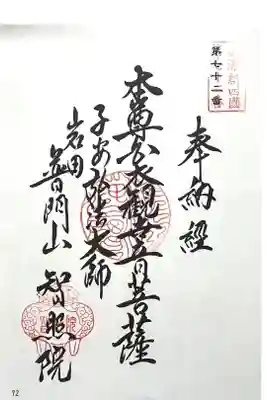 第七十二番
奉納經
本尊白衣觀世音菩薩
子安弘法大師
岩田
普門山 智照院
92